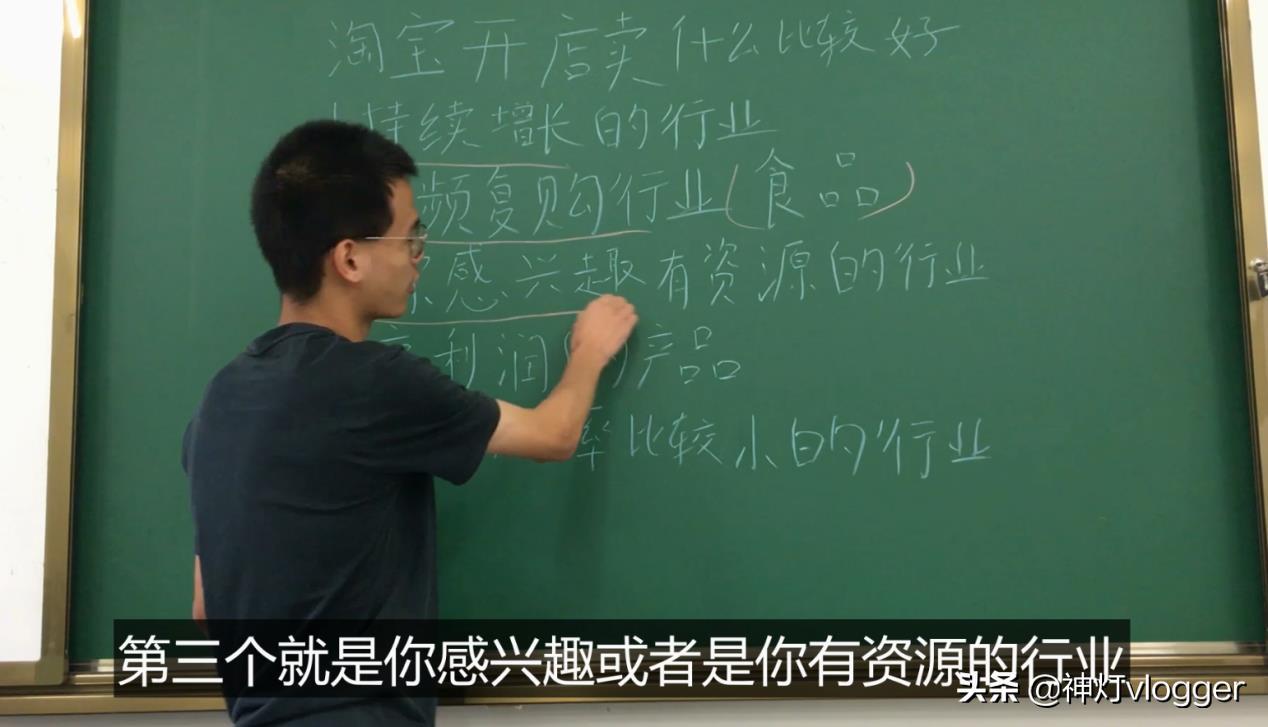 淘宝开店卖什么比较好
持续增长的行业
频复购行业(食品)
你感兴趣有资源的行业
高利润的产品
率比较小的行业
第三个就是你感兴趣或者是你有资源的行业
头条 @神灯vlogger